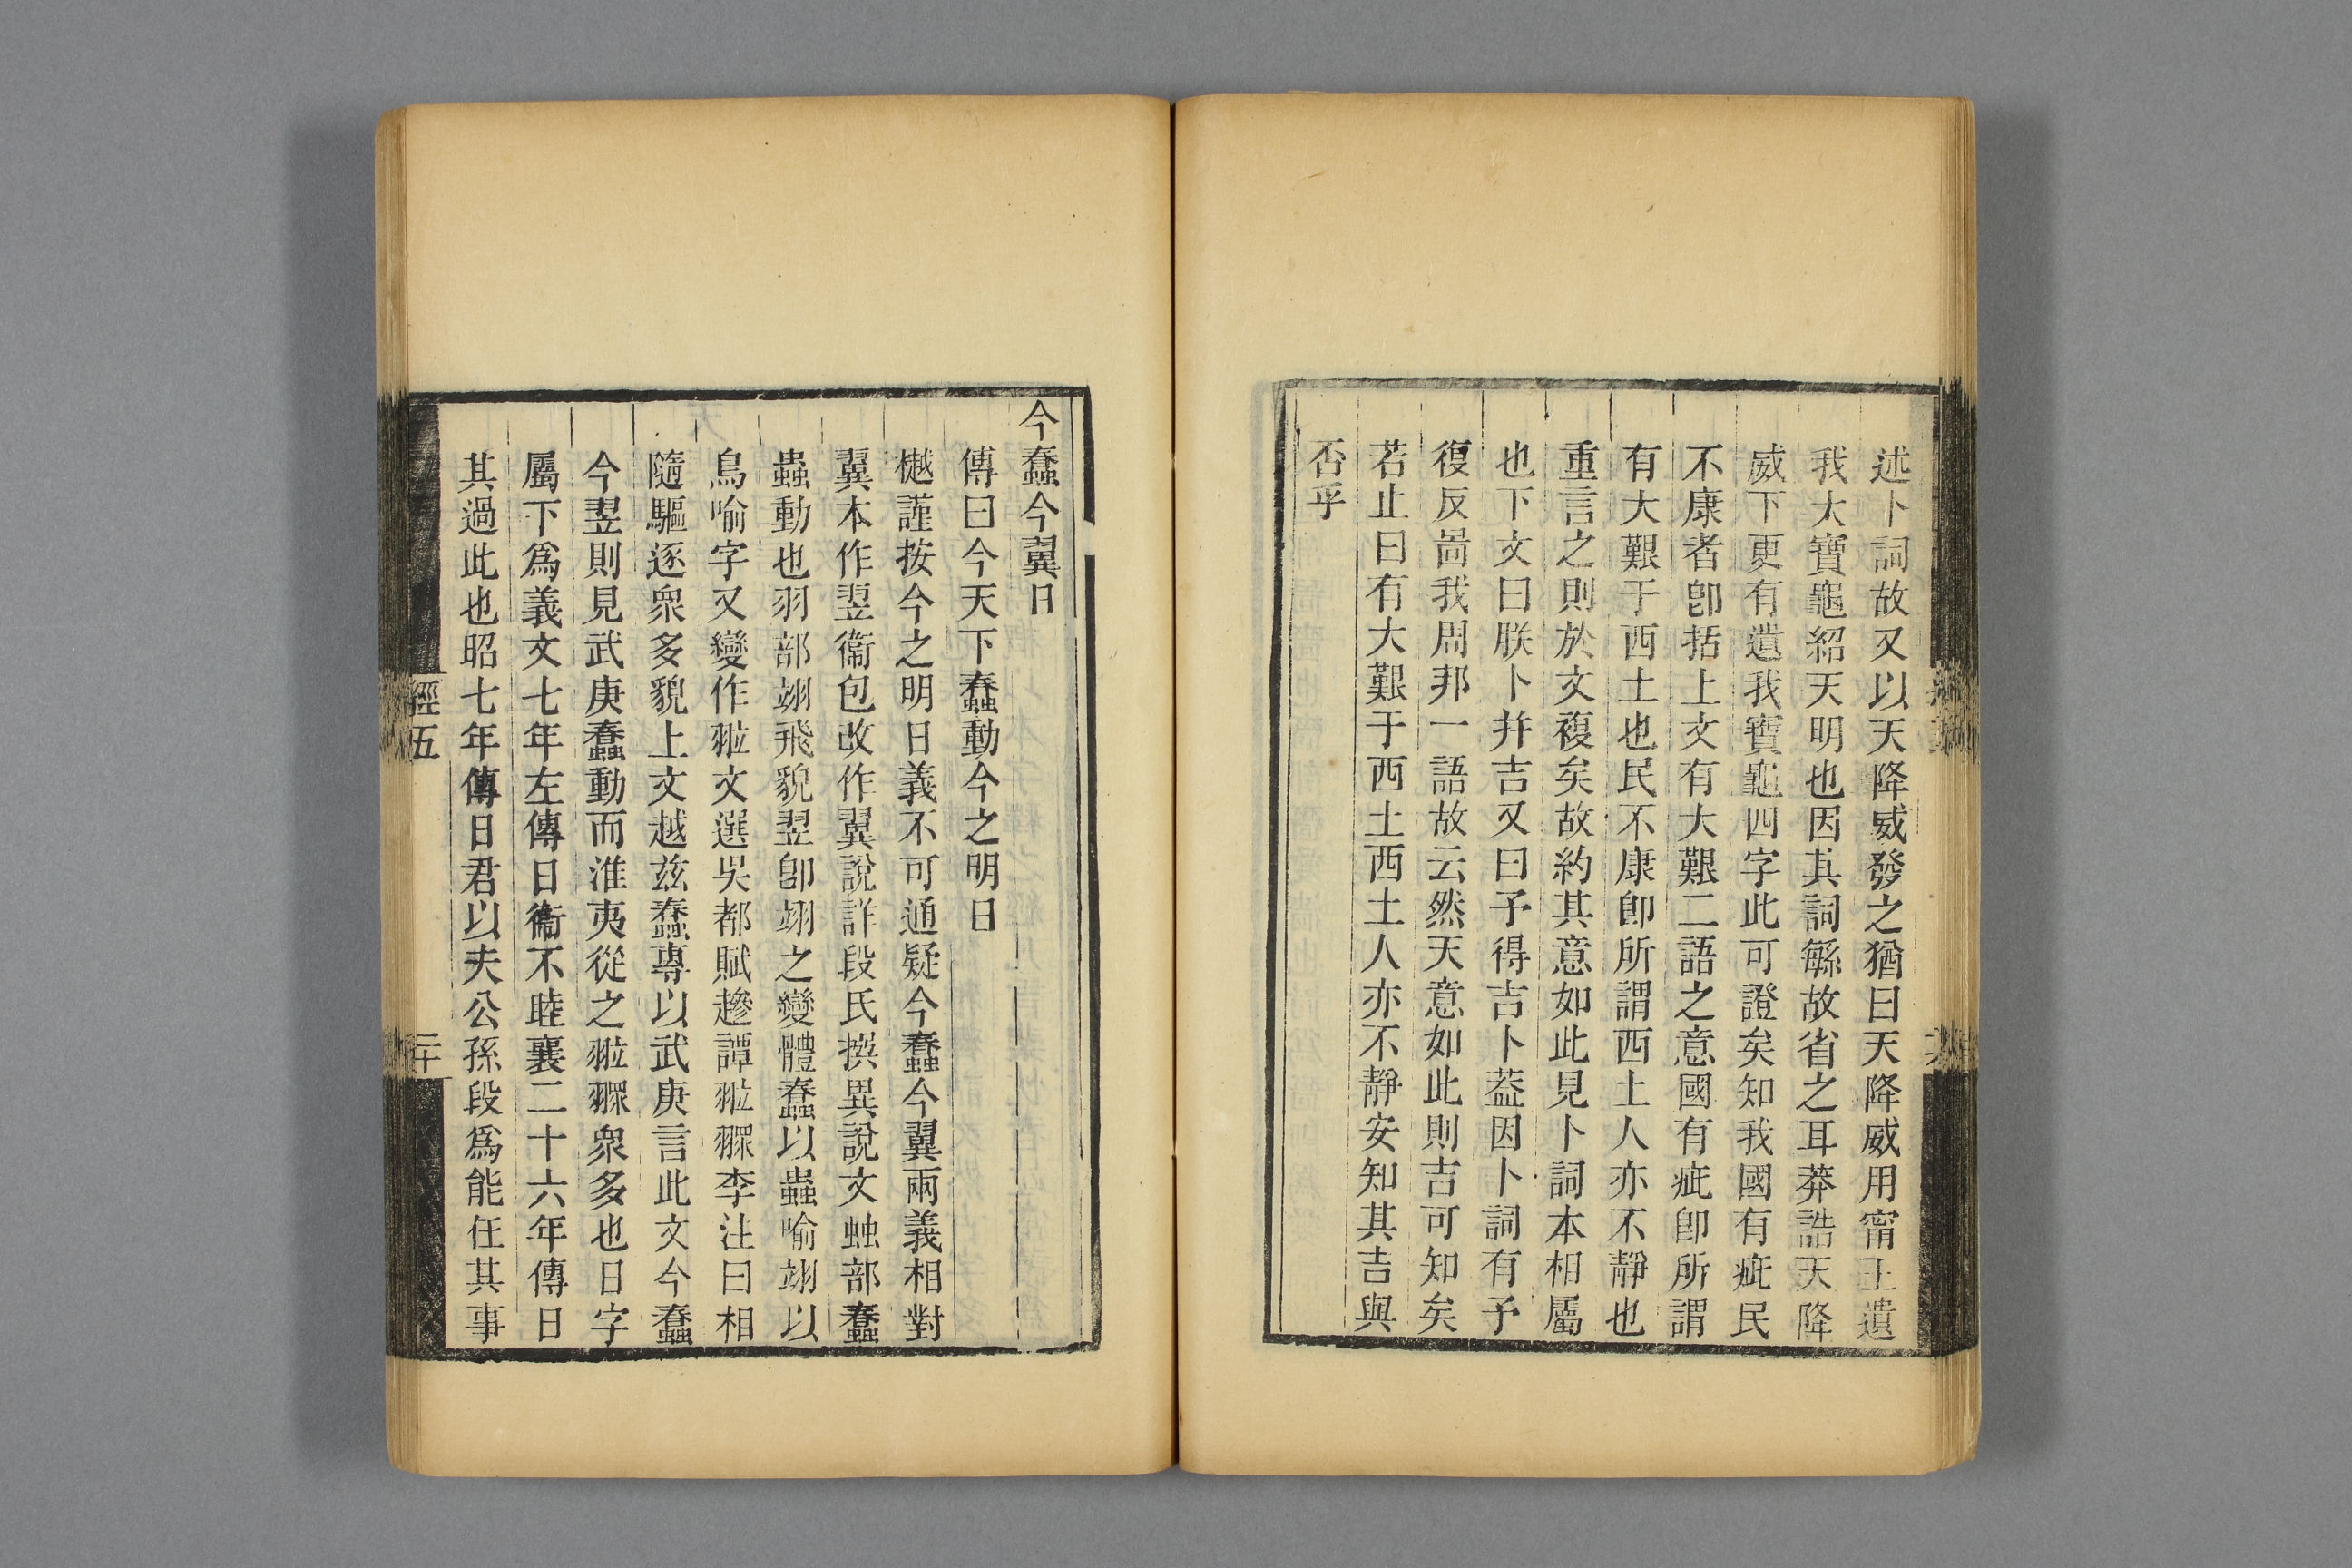 述卜詞故又以天降威發之猶曰天降威用甯王遺
我大寶龜紹天明也因其詞緐故省之耳莽誥天降
威下更有遺我寶龜四字此可證矣知我國有疵民
不康者卽括上文有大艱二語之意國有疵卽所謂
有大艱于西土也民不康卽所謂西土人亦不靜也
重言之則於文複矣故約其意如此見卜詞本相屬
也下文曰朕卜幷吉又曰予得吉卜葢因卜詞有予
復反啚我周邦一語故云然天意如此則吉可知矣
若止曰有大艱于西土西土人亦不靜安知其吉與
否乎
今蠢今翼日
傳曰今天下蠢動今之明日
樾謹按今之明日義不可通疑今蠢今翼兩義相對
翼本作翌衞包改作翼說詳段氏撰異說文䖵部蠢
蟲動也羽部翊飛貌翌卽翊之變體蠢以蟲喻翊以
鳥喻字又變作䎊文選吳都賦趁譚䎊䎀李注曰相
隨驅逐衆多貌上文越茲蠢專以武庚言此文今蠢
今翌則見武庚蠢動而淮夷從之䎊䎀衆多也日字
屬下爲義文七年左傳日衞不睦襄二十六年傳日
其過此也昭七年傳日君以夫公孫段爲能任其事
經五
二十